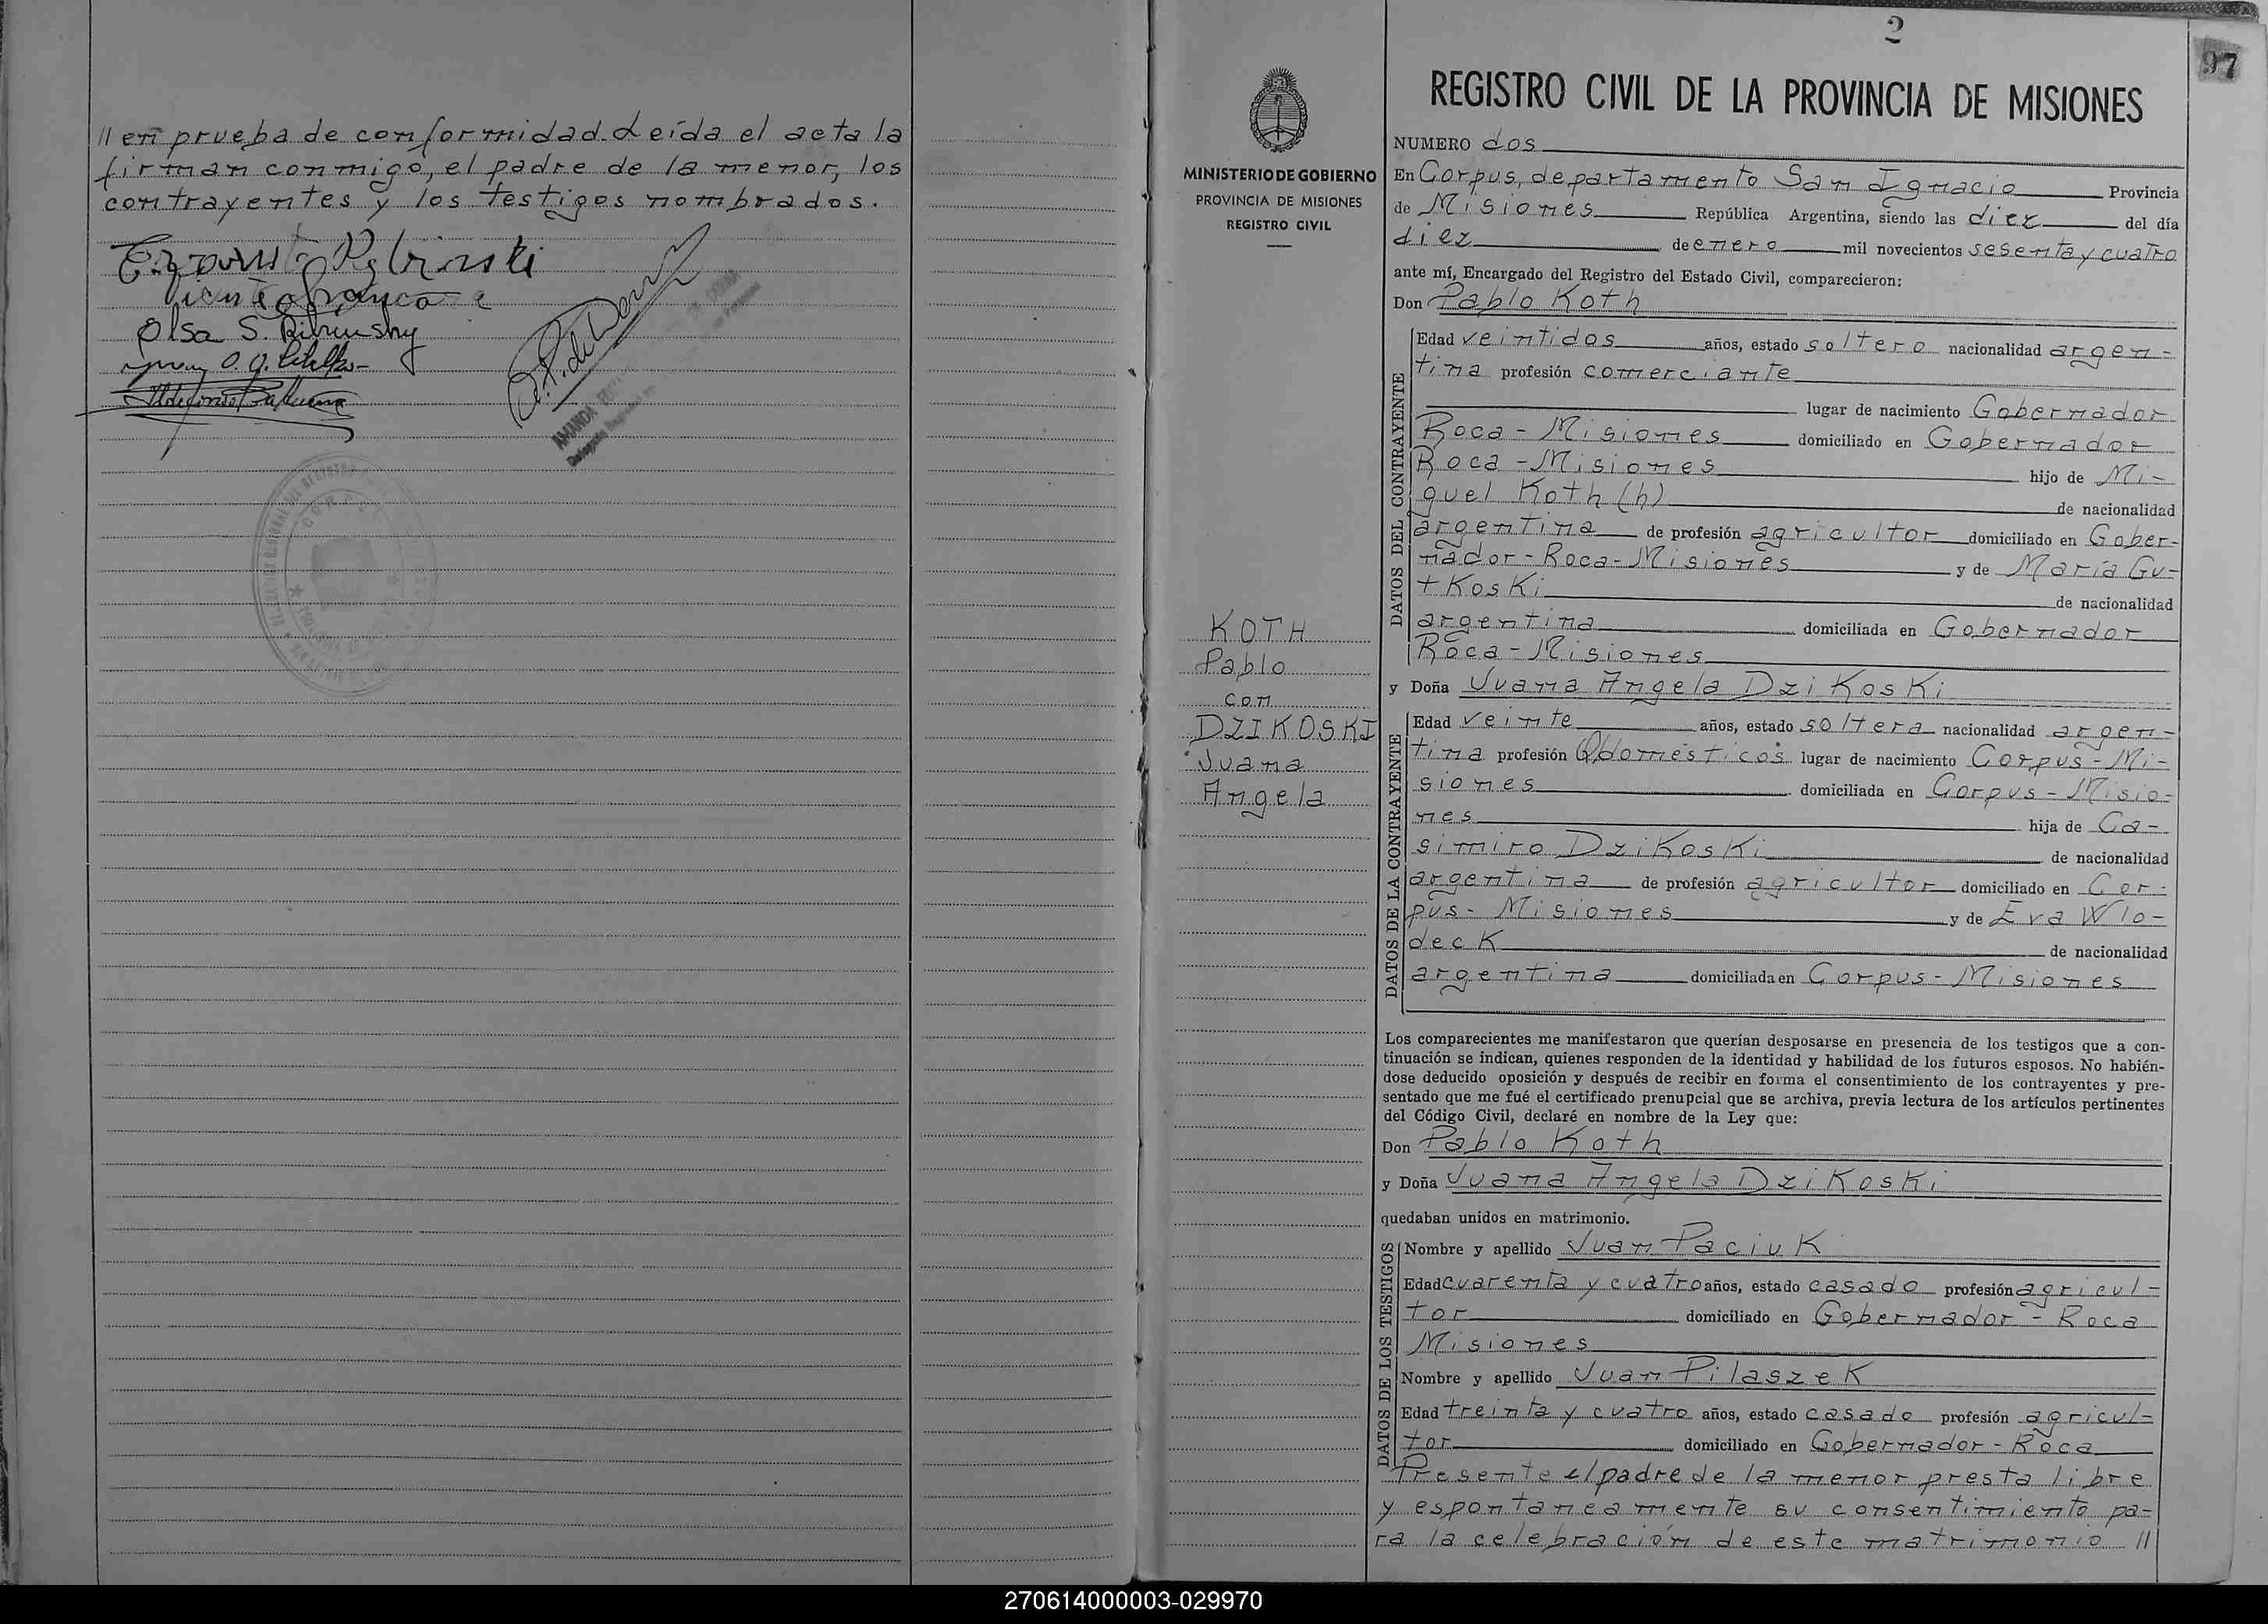 // en prueba de conformidad. Leída el acta la
firman conmigo, el padre de la menor, los
contrayentes y los testigos nombrados.
Olsa S. Ribinsky
AMANDA
2
97
REGISTRO CIVIL DE LA PROVINCIA DE MISIONES
MINISTERIO DE GOBIERNO
PROVINCIA DE MISIONES
REGISTRO CIVIL
KOTH
Pablo
con
DZIKOSKI
Juana
Angela
NUMERO dos
En Corpus, departamento San Ignacio Provincia
de Misiones República Argentina, siendo las diez del día
diez de enero mil novecientos sesenta y cuatro
ante mí, Encargado del Registro del Estado Civil, comparecieron:
Don Pablo Koth
DATOS DEL CONTRAYENTE
Edad veintidos años, estado soltero nacionalidad argen-
tina profesión comerciante
lugar de nacimiento Gobernador
Roca - Misiones domiciliado en Gobernador
Roca - Misiones hijo de Mi-
guel Koth (h) de nacionalidad
argentina de profesión agricultor domiciliado en Gober-
nador - Roca - Misiones y de María Gu-
tKoski de nacionalidad
argentina domiciliada en Gobernador
Roca - Misiones
y Doña Juana Angela DziKosKi
DATOS DE LA CONTRAYENTE
Edad veinte años, estado soltera nacionalidad argen-
tina profesión Q domésticos lugar de nacimiento Corpus - Mi-
siones domiciliada en Corpus - Misio-
nes hija de Ca-
simiro DziKosKi de nacionalidad
argentina de profesión agricultor domiciliado en Cor-
pus - Misiones y de Eva Wlo-
decK de nacionalidad
argentina domiciliada en Corpus - Misiones
Los comparecientes me manifestaron que querían desposarse en presencia de los testigos que a con-
tinuación se indican, quienes responden de la identidad y habilidad de los futuros esposos. No habién-
dose deducido oposición y después de recibir en forma el consentimiento de los contrayentes y pre-
sentado que me fué el certificado prenupcial que se archiva, previa lectura de los artículos pertinentes
del Código Civil, declaré en nombre de la Ley que:
Don Pablo Koth
y Doña Juana Angela DziKosKi
quedaban unidos en matrimonio.
DATOS DE LOS TESTIGOS
Nombre y apellido Juan PaciuK
Edad cuarenta y cuatro años, estado casado profesión agricul-
tor domiciliado en Gobernador - Roca
Misiones
Nombre y apellido Juan PilaszeK
Edad treinta y cuatro años, estado casado profesión agricul-
tor domiciliado en Gobernador - Roca
Presente el padre de la menor presta libre
y espontaneamente su consentimiento pa-
ra la celebración de este matrimonio //
270614000003-029970